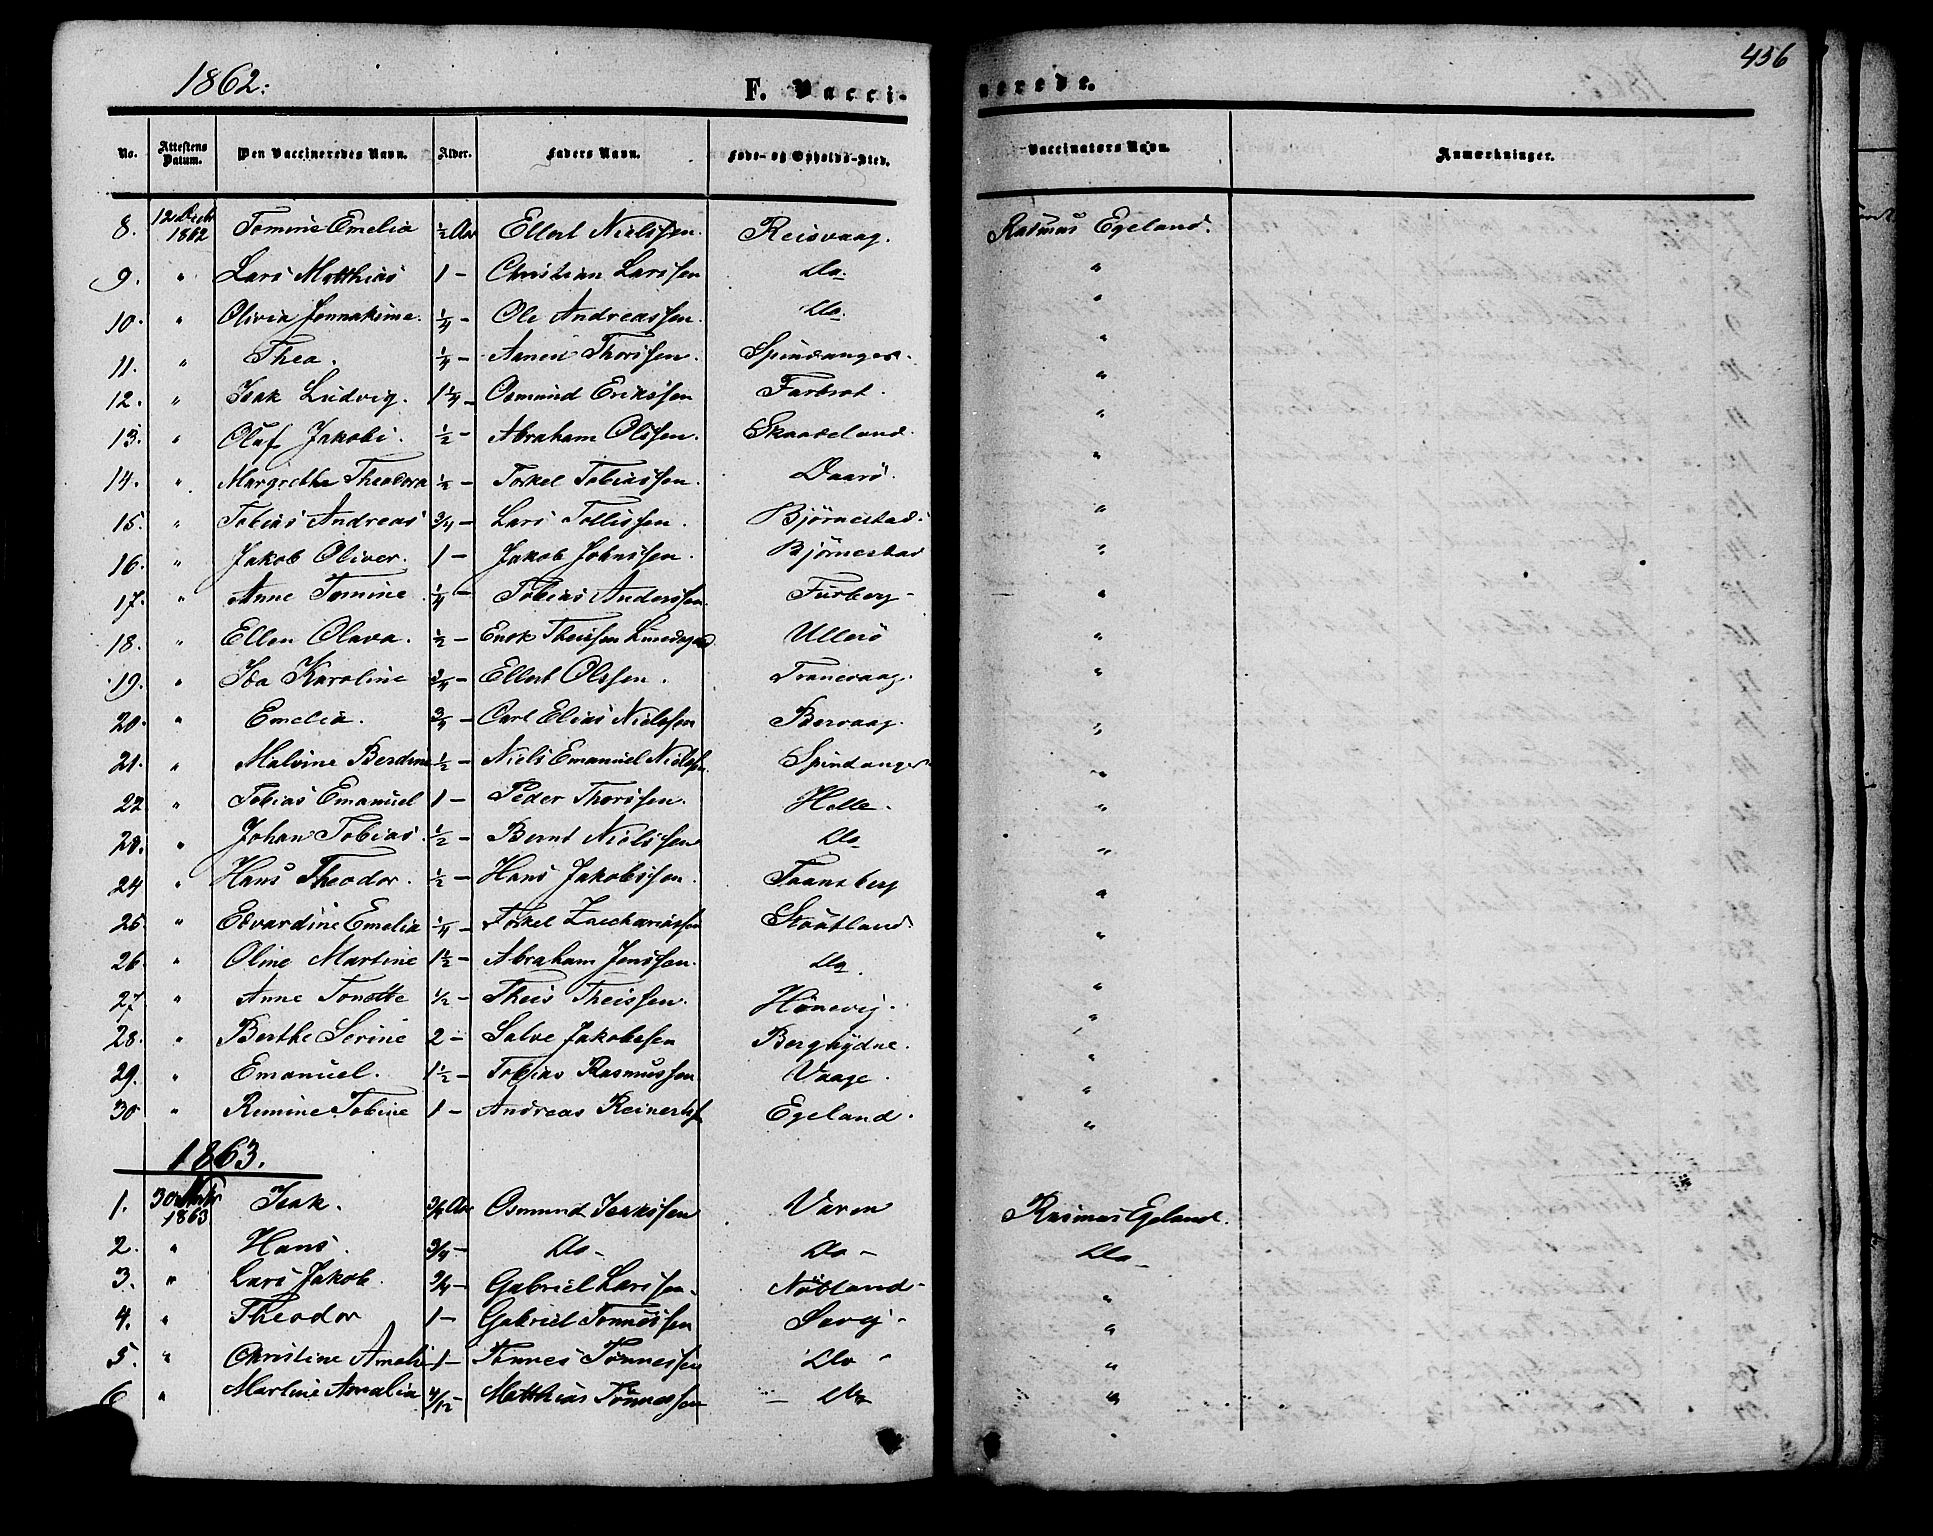 1862. F. Vaccinerede. 456
No. Attestens Datum. Den Vaccineredes Navn. Alder. Faders Navn. Føde- og Opholds-Sted. Vaccinators Navn. Anmærkninger.
8. 12 Decbr 1862 Tomine Emelia ½ Aar Ellert Nielssen. Reisvaag. Rasmus Egeland.
9. " Lars Matthias 1 - Christian Larssen Do. "
10. " Olivia Jonnakime. ¼ - Ole Andreassen. Do. "
11. " Thea. ¼ - Aanen Thorssen. Spindanger. "
12. " Isak Ludvig. 1¼ - Osmund Erikssen Farbrot. "
13. " Oluf Jakobi. ½ - Abraham Olssen. Skaadeland. "
14. " Margrethe Theodora ½ - Torkel Tobiassen. Daarö. "
15. " Tobias Andreas ¾ - Lars Tollissen. Björnestad. "
16. " Jakob Oliver. 1 - Jakob Johnssen. Björnestad "
17. " Anne Tomine. ¼ - Tobias Anderssen. Furberg - "
18. " Ellen Olava. ½ - Enok Theissen Ullerö "
19. " Ida Karoline ¾ - Ellert Olssen. Tranevaag. "
20. " Emelia. ¾ - Carl Elias Nielssen Bervaag. "
21. " Malvine Berdine ½ - Niels Emanuel Nielssen. Spindanger "
22 " Tobias Emanuel 1 - Peder Thorssen. Helle. "
23. " Johan Tobias. ½ - Bernt Nielssen Do "
24 " Hans Theodor. ½ - Hans Jakobssen. Taansberg "
25. " Edvardine Emelia ¼ - Torkel Zacchariassen Stautland. "
26. " Oline Martine 1½ - Abraham Jenssen. Do. "
27. " Anne Tonette ½ - Theis Theissen. Hönevig. "
28. " Berthe Serine 2 - Salve Jakobssen Berghydne. "
29. " Emanuel. 1½ - Tobias Rasmussen Vaage. "
30 " Remine Tobine 1 - Andreas Reinerts Egeland. "
1863.
1. 30 1863 Isak. ¾ Aar Osmund Isakssen Varen Rasmus Egeland.
2. " Hans. ¾ - Do - Do - Do -
3. " Lars Jakob. ¾ - Gabriel Larssen. Nöbland - "
4. " Theodor 1 - Gabriel Tönnessen Sevig - "
5. " Christine Ameli 1 - Tönnes Tönnessen Do - "
6 " Martine Amalia 4/12 - Matthias Tönnessen - Do "